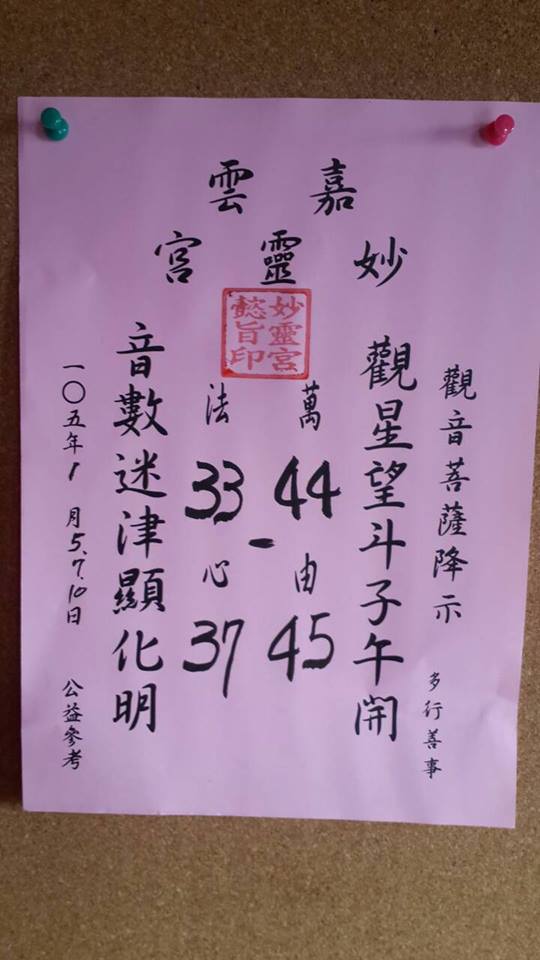 嘉雲
妙靈宮
妙靈宮
懿旨印
觀音菩薩降示 多行善事
觀星望斗子午開
萬 44 由 45
-
法 33 心 37
音數迷津顯化明
一〇五年1月5.7.10日 公益參考